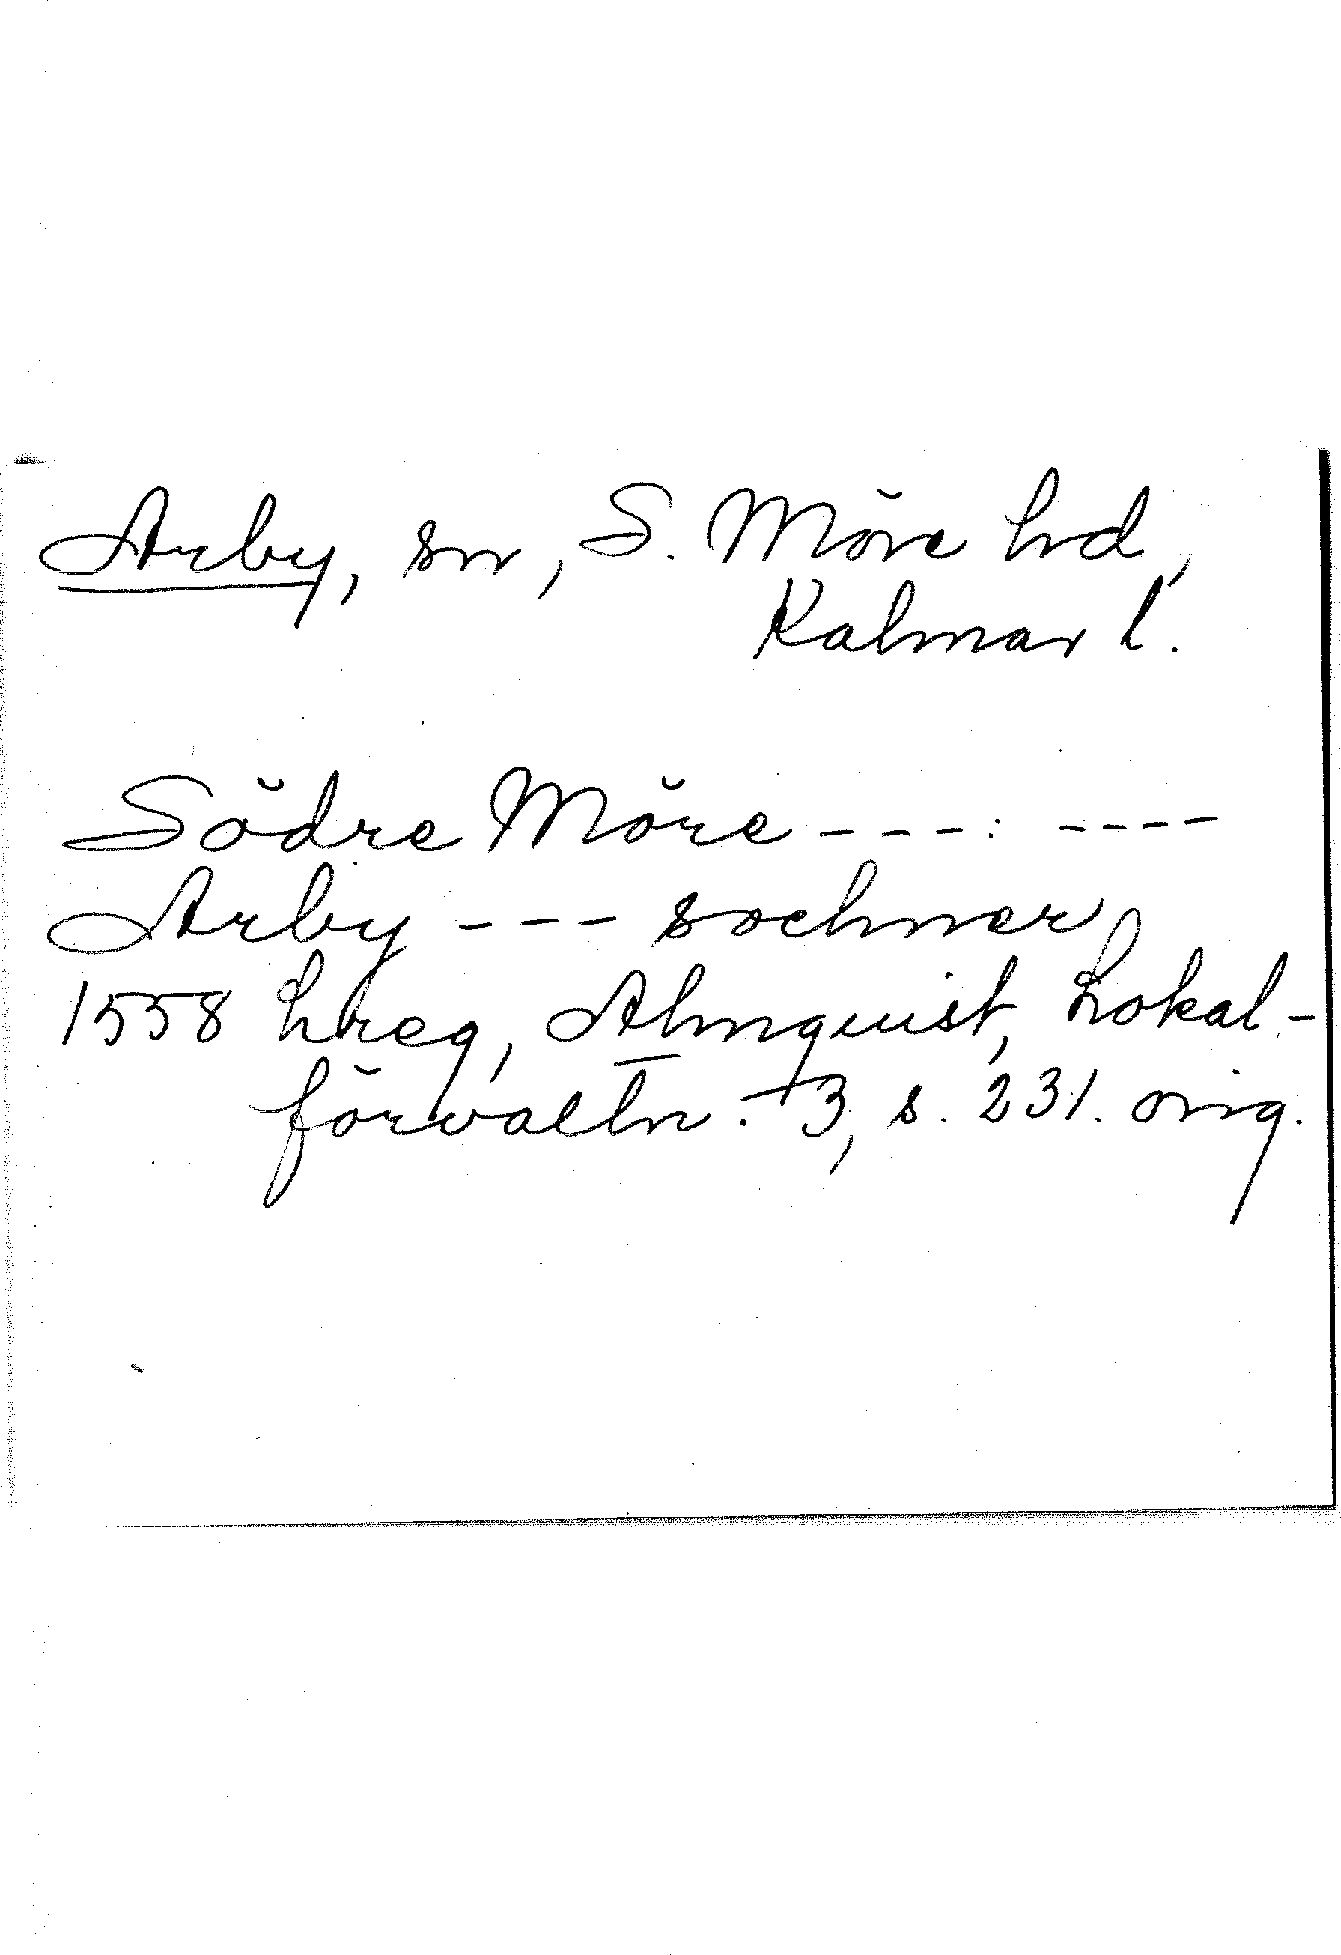 Arby, sn, S. Möre hd,
Kalmar l.
Södre Möre - - - -: - - - -
Arby - - - sochner
1558 hreg, Almquist, Lokal-
förvaltn. 3, s. 231. orig.